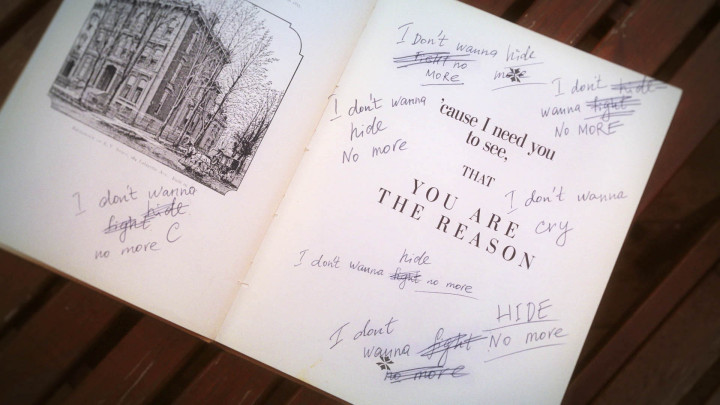 I don't wanna
fight hide
no more C
I Don't wanna hide
fight no
MoRe
I don't hide
wanna fight
No MoRE
I don't wanna
hide
No more
'cause I need you
to see,
THAT
YOU ARE
THE REASON
I don't wanna
cry
hide
I dont wanna fight no more
I dont
wanna fight
no more
HIDE
No more